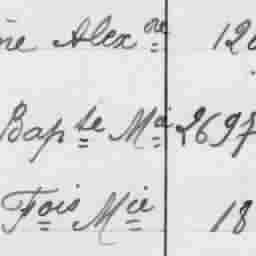 ne Alexre 120
Bapte Mie 2697
Fois Mie 18